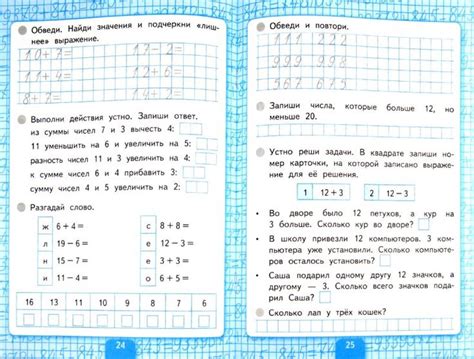 Обведи. Найди значения и подчеркни «лиш-
нее» выражение.
10+7=
17-2=
11+4=
12+6=
8+7=
Выполни действия устно. Запиши ответ.
из суммы чисел 7 и 3 вычесть 4:
11 уменьшить на 6 и увеличить на 5:
разность чисел 11 и 3 увеличить на 4:
к сумме чисел 6 и 4 прибавить 3:
сумму чисел 4 и 5 увеличить на 2:
Разгадай слово.
ж 6+4=
с 8+8=
л 19−6=
е 12−3=
н 15−7=
е 3+3=
и 11−4=
о 6+5=
16 13 11 10 9 8 7 6
24
Обведи и повтори.
111 222
999 998
567 675
Запиши числа, которые больше 12, но
меньше 20.
Устно реши задачи. В квадрате запиши но-
мер карточки, на которой записано выраже-
ние для её решения.
1 12+3
2 12−3
• Во дворе было 12 петухов, а кур на
3 больше. Сколько кур во дворе?
• В школу привезли 12 компьютеров. 3 ком-
пьютера уже установили. Сколько компьюте-
ров осталось установить?
• Саша подарил одному другу 12 значков, а
другому — 3. Сколько всего значков пода-
рил Саша?
Сколько лап у трёх кошек?
25